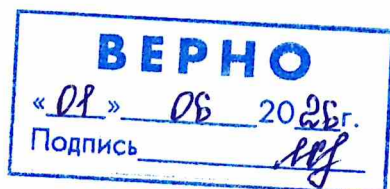 ВЕРНО
«01» 06 2026г.
Подпись